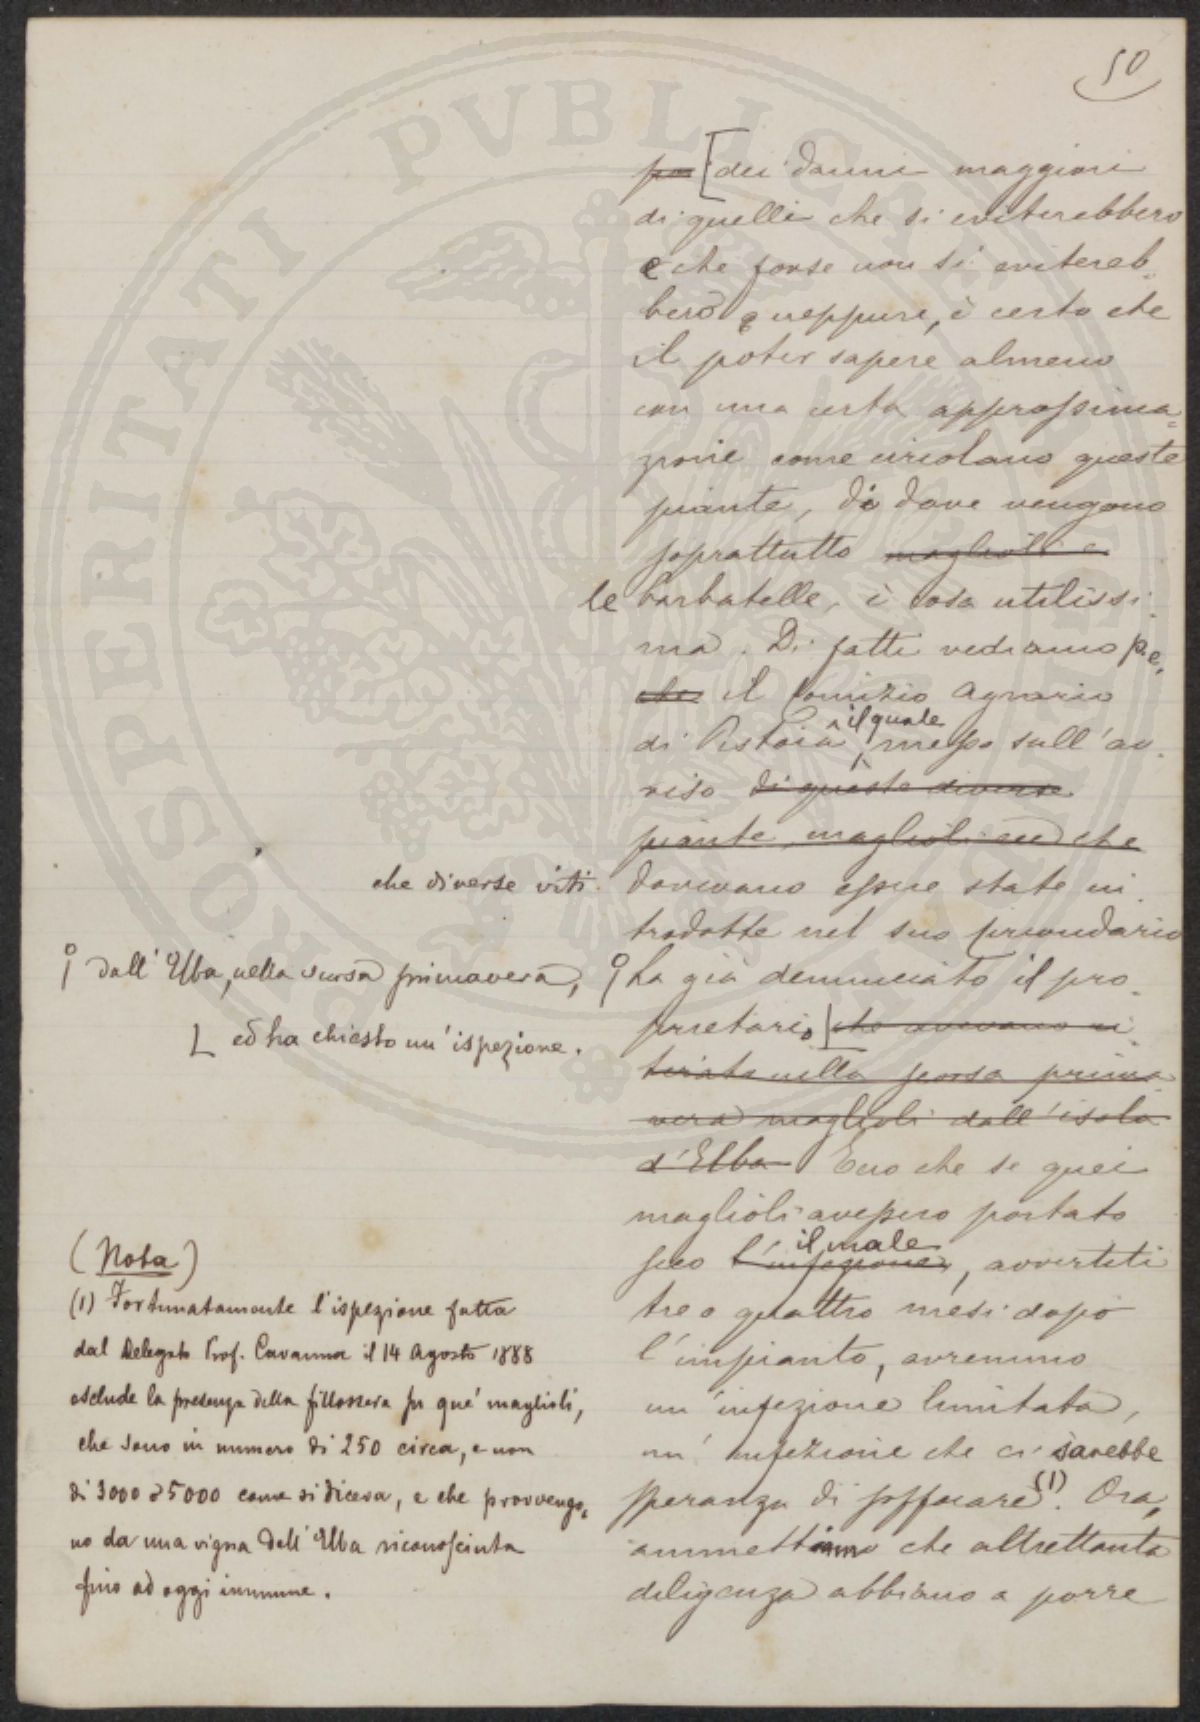 50
po [dei danni maggiori
di quelli che si eviterebbero
e che forse non si eviterebbero
bero neppure, è certo che
il poter sapere almeno
con una certa approssima=
zione come circolano queste
piante, di dove vengono
soprattutto maglioli e
le barbatelle, è cosa utilissi-
ma. Di fatti vediamo p.e.
che il Comizio Agrario
di Pistoia, il quale messo sull'av-
viso di queste diverse
piante, maglioli ecc che
che diverse viti
dovevano essere state in
trodotte nel suo circondario
dall'Elba, nella scorsa primavera,
ha già denunciato il pro-
prietario che avevano ri
[ ed ha chiesto un'ispezione.
tirato nella scorsa prima
vera maglioli dall'isola
d'Elba Ecco che se quei
maglioli avessero portato
seco l'infezione il male, avvertiti
tre o quattro mesi dopo
l'impianto, avremmo
un'infezione limitata,
un'infezione che ci sarebbe
speranza di soffocare (1). Ora,
ammettiamo che altrettanta
diligenza abbiano a porre
(Nota)
(1) Fortunatamente l'ispezione fatta
dal Delegato Prof. Cavanna il 14 Agosto 1888
esclude la presenza della fillossera su que' maglioli,
che sono in numero di 250 circa, e non
di 3000 o 5000 come si diceva, e che provengo=
no da una vigna dell'Elba riconosciuta
fino ad oggi immune.
PROSPERITATI PVBLICAE